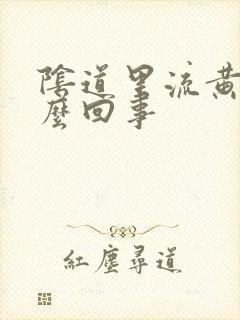 陰道里流黃
麼回事
紅塵尋道